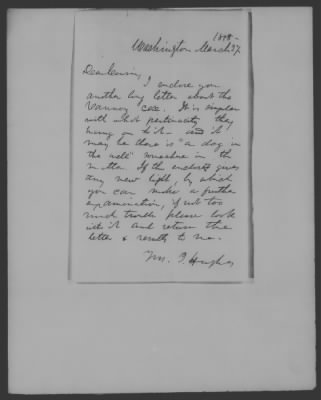 1878-
Washington March 27.
Dear
I enclose you
another long letter about the
Vannoy case. It is singular
with what pertenacity they
hang on to it - and it
may be there is "a dog in
the well" somewhere in the
matter. If the enclosed gives
any new light, by which
you can make a further
examination, if not too
much trouble please look
into it and return the
letter & results to me.
Hughes